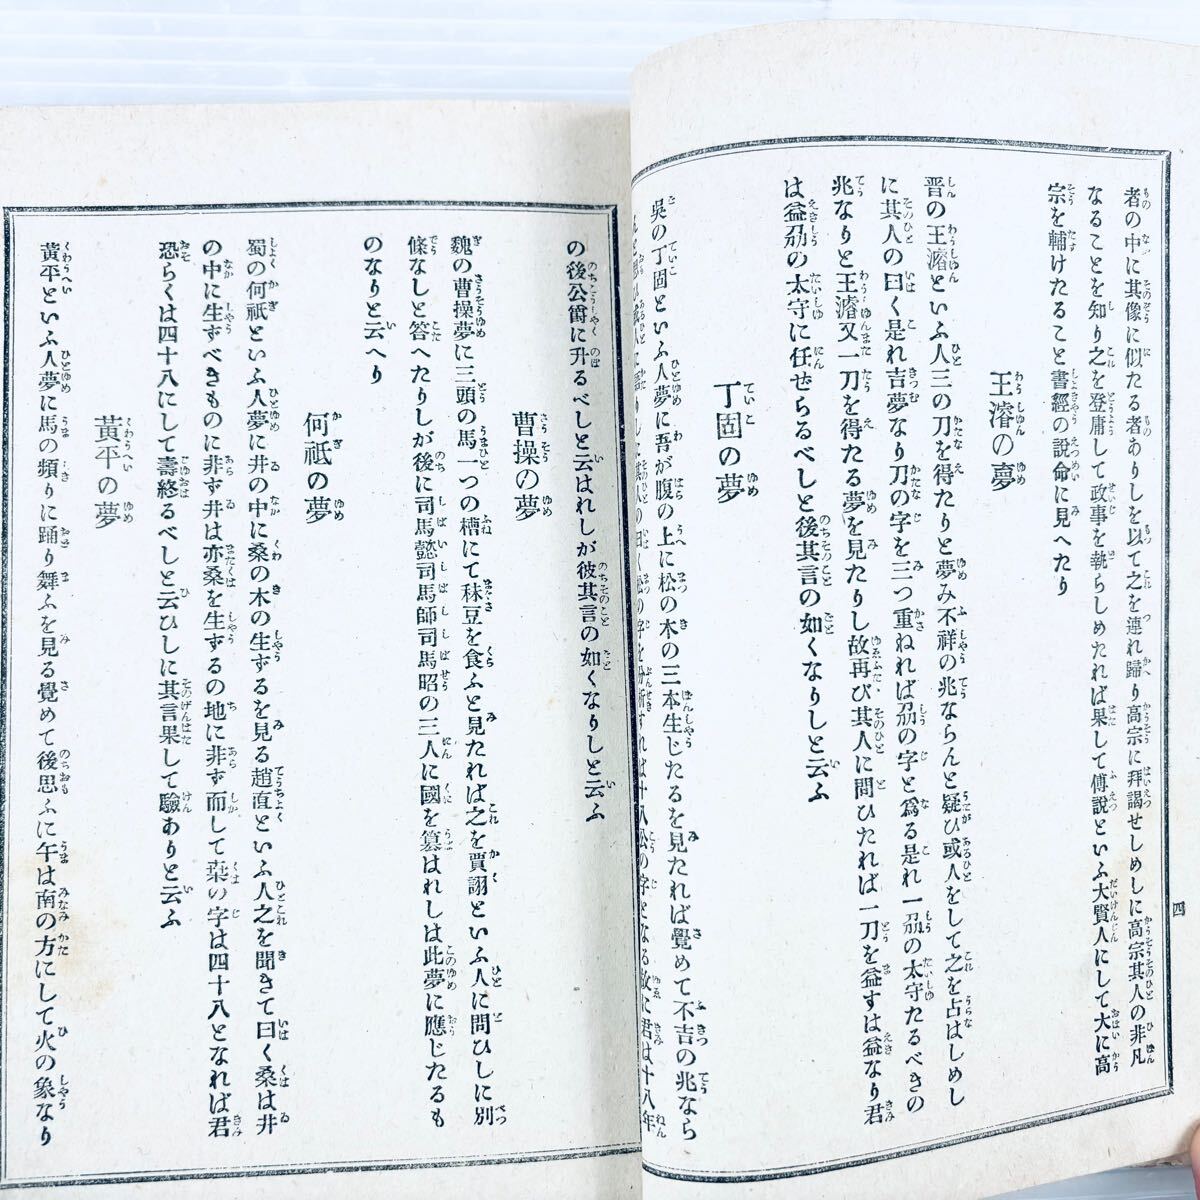 者の中に其像に似たる者ありしを以て之を連れ歸り高宗に拜謁せしめしに高宗其人の非凡
なることを知り之を登庸して政事を執らしめたれば果して傅說といふ大賢人にして大に高
宗を輔けたること書經の說命に見へたり
王濬の夢
晋の王濬といふ人三の刀を得たりと夢み不祥の兆ならんと疑ひ或人をして之を占はしめし
に其人の曰く是れ吉夢なり刀の字を三つ重ねれば刕の字と爲る是れ一刕の太守たるべきの
兆なりと王濬又一刀を得たる夢を見たりし故再び其人に問ひたれば一刀を益すは益なり君
は益刕の太守に任せらるべしと後其言の如くなりしと云ふ
丁固の夢
吳の丁固といふ人夢に吾が腹の上に松の木の三本生じたるを見たれば覺めて不吉の兆なら
其人の曰く松の字を分析すれば十八公の字となる故に君は十八年
四
の後公爵に升るべしと云はれしが彼其言の如くなりしと云ふ
曹操の夢
魏の曹操夢に三頭の馬一つの槽にて秣豆を食ふと見たれば之を賈詡といふ人に問ひしに別
條なしと答へたりしが後に司馬懿司馬師司馬昭の三人に國を簒はれしは此夢に應じたるも
のなりと云へり
何祗の夢
蜀の何祗といふ人夢に井の中に桑の木の生ずるを見る趙直といふ人之を聞きて曰く桑は井
の中に生ずべきものに非ず井は亦桑を生ずるの地に非ず而して桒の字は四十八となれば君
恐らくは四十八にして壽終るべしと云ひしに其言果して驗ありと云ふ
黃平の夢
黃平といふ人夢に馬の頻りに踊り舞ふを見る覺めて後思ふに午は南の方にして火の象なり